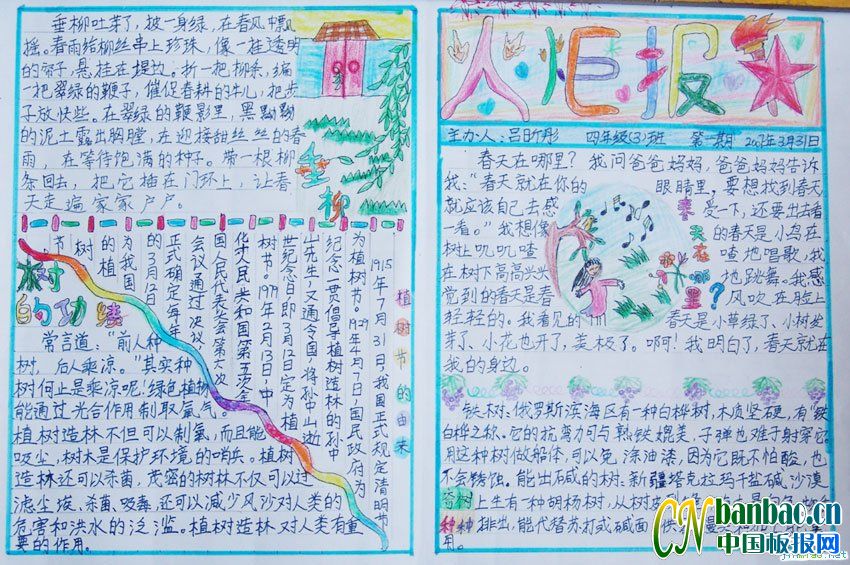 垂柳吐芽了，披一身绿，在春风中飘
摇。春雨给柳丝串上珍珠，像一挂透明
的帘子，悬挂在堤边。折一把柳条，编
一把翠绿的鞭子，催促春耕的牛儿，把步
子放快些。在翠绿的鞭影里，黑黝黝
的泥土露出胸膛，在迎接甜丝丝的春
雨，在等待饱满的种子。带一根柳
条回去，把它插在门环上，让春
天走遍家家户户。
垂柳
植树节的由来
1915年7月31日，我国正式规定清明节
为植树节。1929年4月7日，国民政府为
纪念一贯倡导植树造林的孙中
山先生，又通令全国，将孙中山逝
世纪念日即3月12日定为植
树节。1979年2月13日，中
华人民共和国第五次全
国人民代表大会第六次
会议通过决议，
正式确定每年
的3月12日
为我国
的植
树
节
树的功绩
常言道：“前人种
树，后人乘凉。”其实种
树何止是乘凉呢！绿色植物
能通过光合作用制取氧气。
植树造林不但可以制氧，而且能
吸尘，树木是保护环境的哨兵。植树
造林还可以杀菌。茂密的树林不仅可以过
滤尘埃、杀菌、吸毒，还可以减少风沙对人类的
危害和洪水的泛滥。植树造林对人类有重
要的作用。
火炬报
主办人：吕昕彤 四年级(3)班 第一期 2007年3月31日
春天在哪里？我问爸爸妈妈，爸爸妈妈告诉
我：“春天就在你的眼睛里，要想找到春天
就应该自己去感受一下，还要出去看
一看。”我想像的春天是小鸟在
树上叽叽喳喳地唱歌，我
在树下高高兴兴地跳舞。我感
觉到的春天是春风吹在脸上
轻轻的。我看见的春天是小草绿了、小树发
芽了、小花也开了，美极了。啊！我明白了，春天就在
我的身边。
春天在哪里？
铁树：俄罗斯滨海区有一种白桦树，木质坚硬，有“铁
白桦之称。它的抗弯力可与熟铁媲美，子弹也难于射穿它。
用这种树做船体，可以免涂油漆，因为它既不怕酸，也
不会锈蚀。能出碱的树：新疆塔克拉玛干盐碱沙漠
上生有一种胡杨树，从树皮
排出，能代替苏打或碱面，供
用。
奇树种种
CN banbao.cn
中国板报网